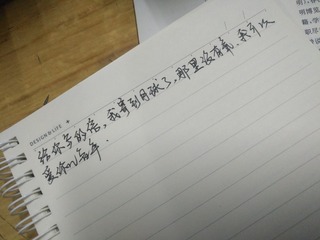 DESIGN LIFE
给你写的信,我寄到月球了,那里没有氧.我可以
爱你万年.